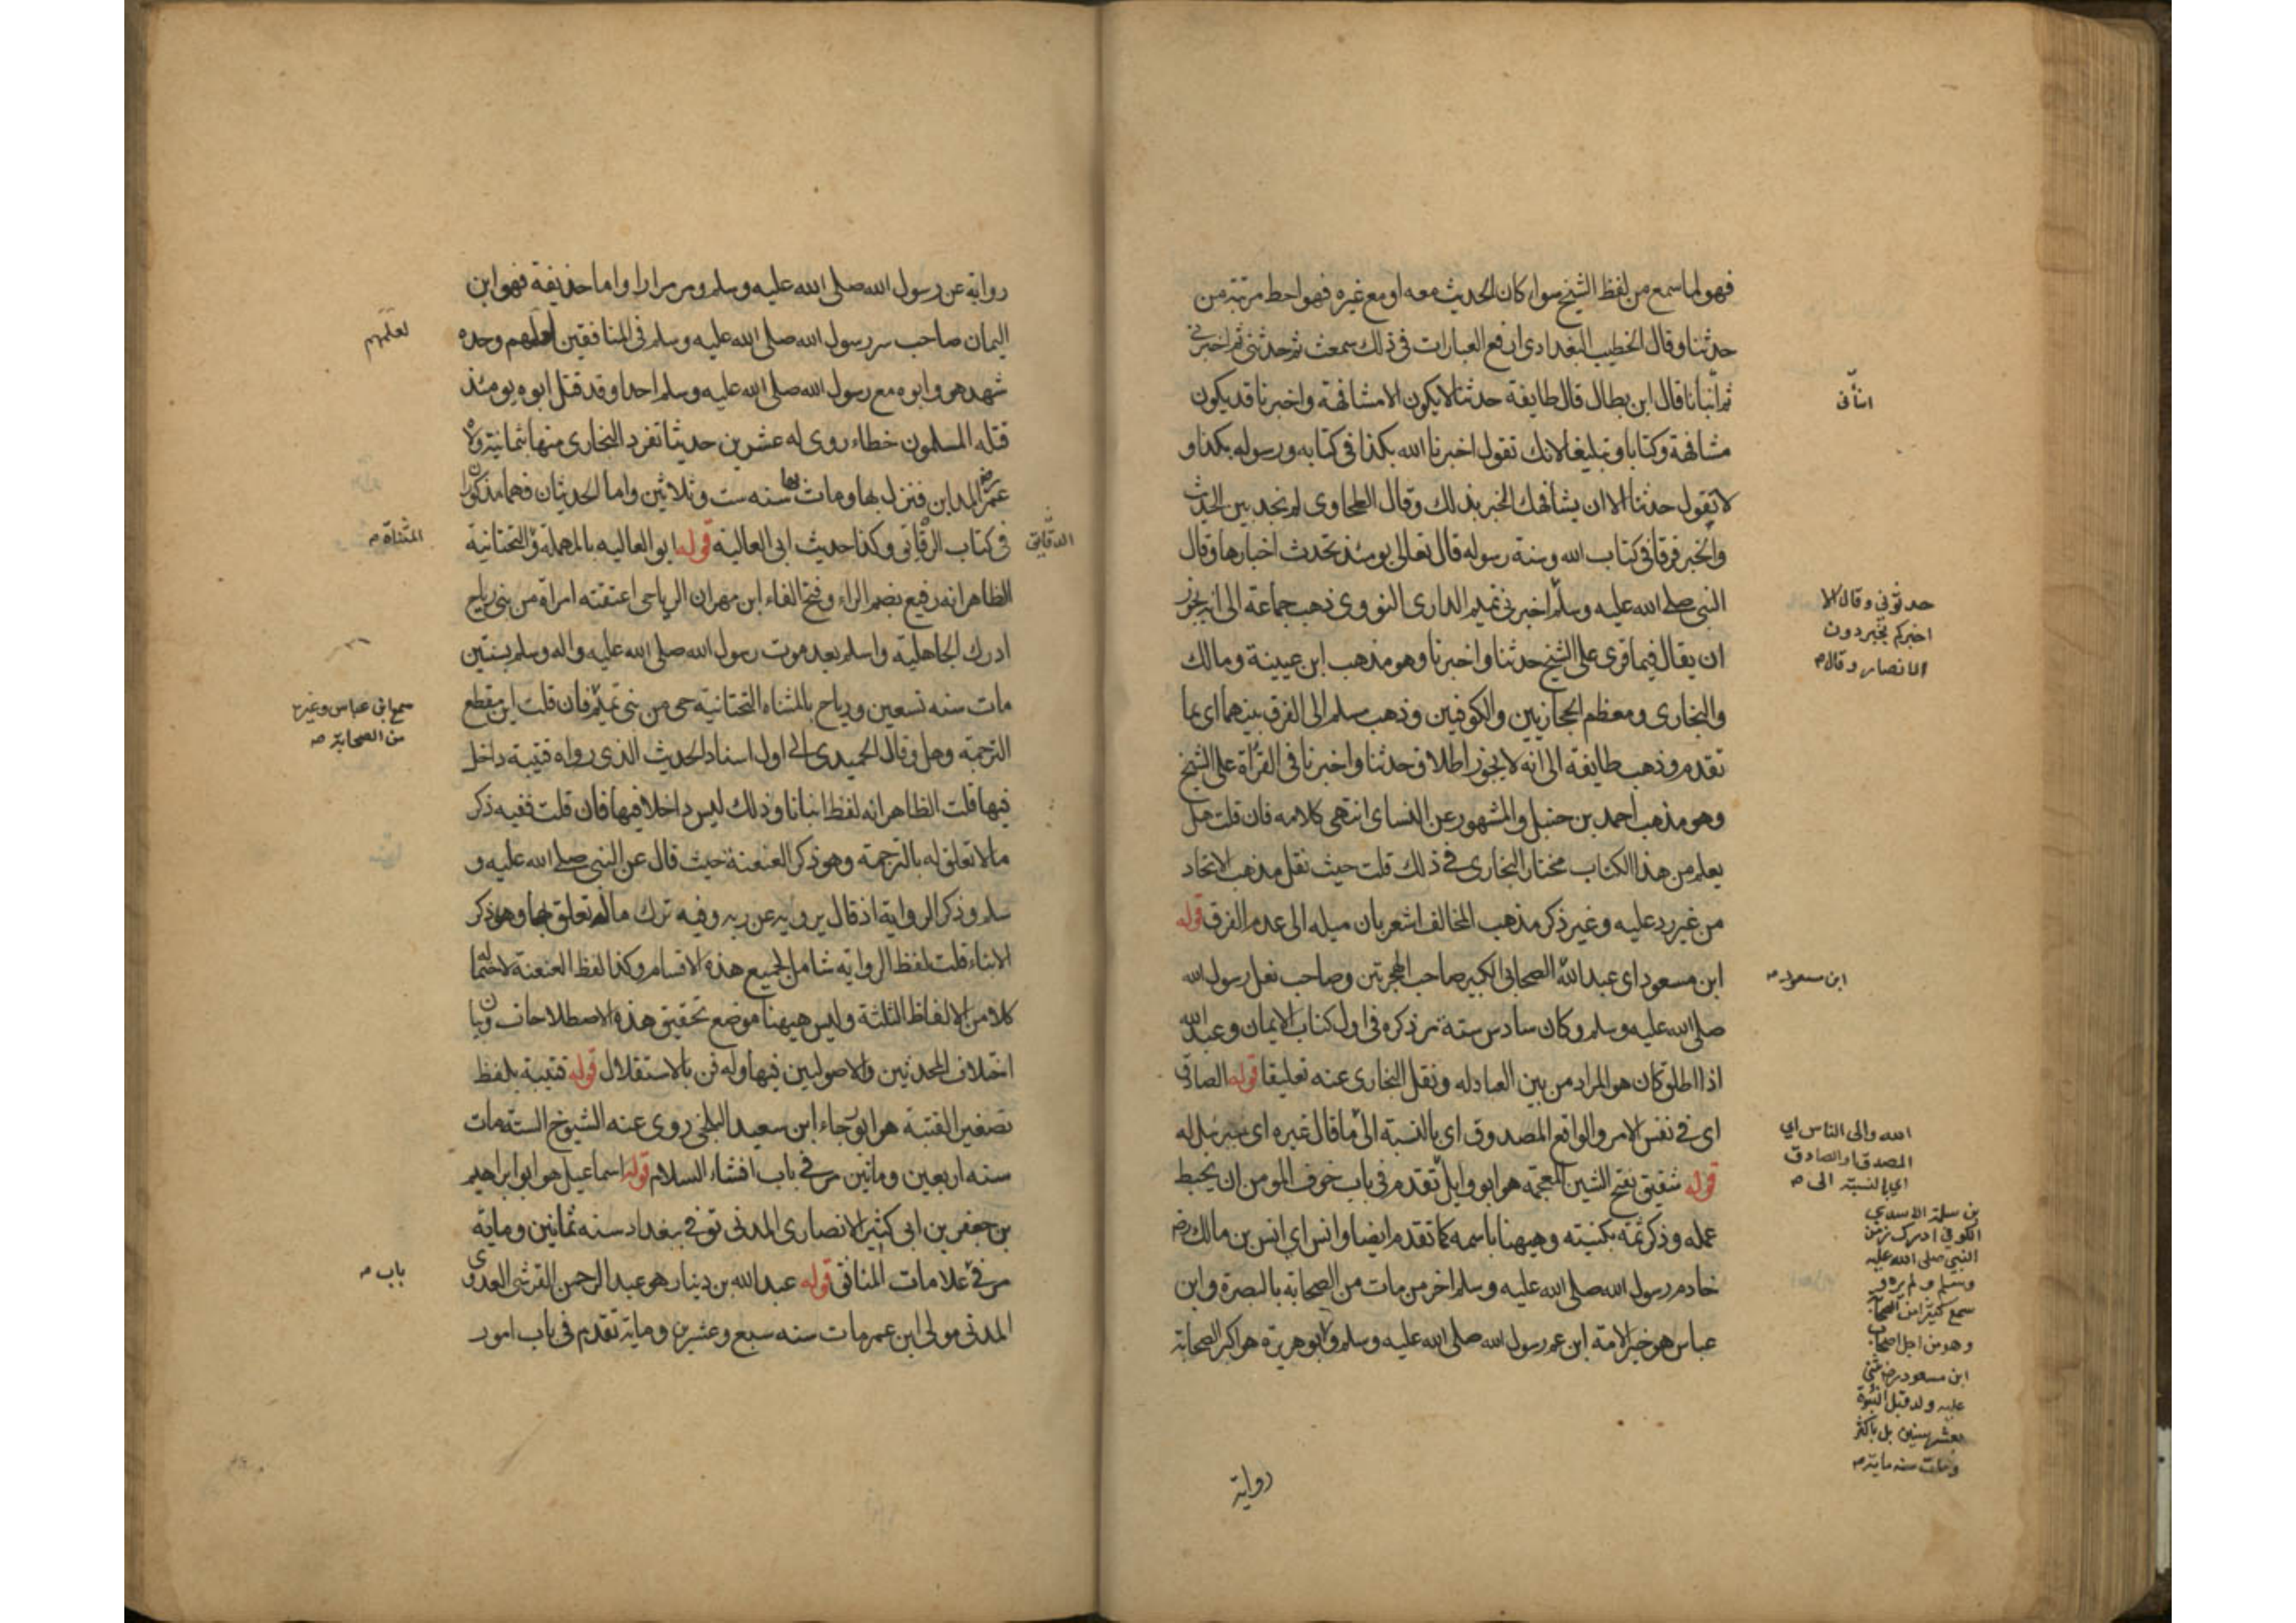 فهو لما سمع من لفظ الشيخ سواء كان الحديث معه او مع غيره فهو احط مرتبة من
حدثنا وقال الخطيب البغدادى ارفع العبارات فى ذلك سمعت ثم حدثنى ثم اخبرنى
ثم انبانا قال ابن بطال قال طايفة حدثنا لا يكون الا مشافهة واخبرنا قد يكون
مشافهة وكتابا وتبليغا لانك تقول اخبرنا الله بكذا فى كتابه ورسوله بكذا و
لا تقول حدثنا الا ان يشافهك الخبر بذلك وقال الطحاوى لم نجد بين الحديث
والخبر فرقا فى كتاب الله وسنة رسوله قال تعالى يومئذ تحدث اخبارها وقال
النبى صلى الله عليه وسلم اخبرنى تميم الدارى النووى ذهب جماعة الى انه يجوز
ان يقال فيما قرى على الشيخ حدثنا واخبرنا وهو مذهب ابن عيينة ومالك
والبخارى ومعظم الحجازيين والكوفيين وذهب مسلم الى الفرق بينهما اى بما
تقدم وذهب طايفة الى انه لا يجوز اطلاق حدثنا واخبرنا فى القراة على الشيخ
وهو مذهب احمد بن حنبل والمشهور عن النساى انتهى كلامه فان قلت هل
يعلم من هذا الكتاب مختار البخارى فى ذلك قلت حيث نقل مذهب الاتحاد
من غير رد عليه وغير ذكر مذهب المخالف اشعر بان ميله الى عدم الفرق قوله
ابن مسعود اى عبد الله الصحابى الكبير صاحب الهجرتين وصاحب نعل رسول الله
صلى الله عليه وسلم وكان سادس ستة مر ذكره فى اول كتاب الايمان وعبد الله
اذا اطلق كان هو المراد من بين العبادله ونقل البخارى عنه تعليقا قوله الصادق
اى فى نفس الامر والواقع المصدوق اى بالنسبة الى ما قال غيره اى جبرئيل له
قوله شقيق بفتح الشين المعجمة هو ابو وايل تقدم فى باب خوف المومن ان يحبط
عمله وذكر ثمة بكنيته وهيهنا باسمه كما تقدم ايضا وانس اي انس بن مالك رض
خادم رسول الله صلى الله عليه وسلم اخر من مات من الصحابة بالبصرة وابن
عباس هو حبر الامة ابن عم رسول الله صلى الله عليه وسلم وابو هريرة هو اكبر الصحابة
رواية
حدثوني وقال الا
اخبركم بخير دون
الانصار وقال م
ابن مسعود م
الله والى الناس اي
المصدق او الصادق
اي بالنسبة الى م
بن سلمة الاسدي
الكوفي ادرك زمن
النبي صلى الله عليه
وسلم ولم يره و
سمع كثيرا من الصحابة
وهو من اجل اصحاب
ابن مسعود رض
عليه ولد قبل النبوة
بعشر سنين بل باكثر
ومات سنة ماية م
رواية عن رسول الله صلى الله عليه وسلم ومر مرارا واما حذيفة فهو ابن
اليمان صاحب سر رسول الله صلى الله عليه وسلم فى المنافقين لعلمهم وحده
شهد هو وابوه مع رسول الله صلى الله عليه وسلم احدا وقد قتل ابوه يومئذ
قتله المسلمون خطاء روى له عشرين حديثا تفرد البخارى منها بثمانية ولاه
عمر رض المداين فنزل بها ومات بها سنه ست وثلاثين واما الحديثان فهما مذكوران
فى كتاب الرقاق وكذا حديث ابى العالية قوله ابو العاليه بالمهملة والتحتانية
الظاهر انه رفيع بضم الراء وفتح الفاء ابن مهران الرياحى اعتقته امراة من بنى رياح
ادرك الجاهلية واسلم بعد موت رسول الله صلى الله عليه واله وسلم بسنتين
مات سنه تسعين ورياح بالمثناه التحتانية حى من بنى تميم فان قلت اين مقطع
الترجمة وهل وقال الحميدى الى اول اسناد الحديث الذى رواه قتيبة داخل
فيها قلت الظاهر انه لفظ انبانا وذلك ليس داخلا فيها فان قلت ففيه ذكر
ما لا تعلق له بالترجمة وهو ذكر العنعنة حيث قال عن النبى صلى الله عليه و
سلم وذكر الرواية اذ قال يرويه عن ربه وفيه ترك ماله تعلق بها وهو ذكر
الانباء قلت لفظ الرواية شامل لجميع هذه الاقسام وكذا لفظ العنعنة لاحتماله
كلا من الالفاظ الثلثة وليس هيهنا موضع تحقيق هذه الاصطلاحات وبيان
اختلاف المحدثين والاصوليين فيها وله فن بالاستقلال قوله قتيبة بلفظ
تصغير القتبة هو ابو رجاء ابن سعيد البلخى روى عنه الشيوخ الستة مات
سنه اربعين وماتين مر فى باب افشاء السلام قوله اسماعيل هو ابو ابراهيم
بن جعفر بن ابى كثير الانصارى المدنى توفى ببغداد سنه ثمانين وماية
مر فى علامات المنافق قوله عبد الله بن دينار هو عبد الرحمن القرشى العدوى
المدنى مولى ابن عمر مات سنه سبع وعشرين وماية تقدم فى باب امور
لعلمهم
الدقايق
المثناة م
سمع ابن عباس وغيره
من الصحابة م
باب م